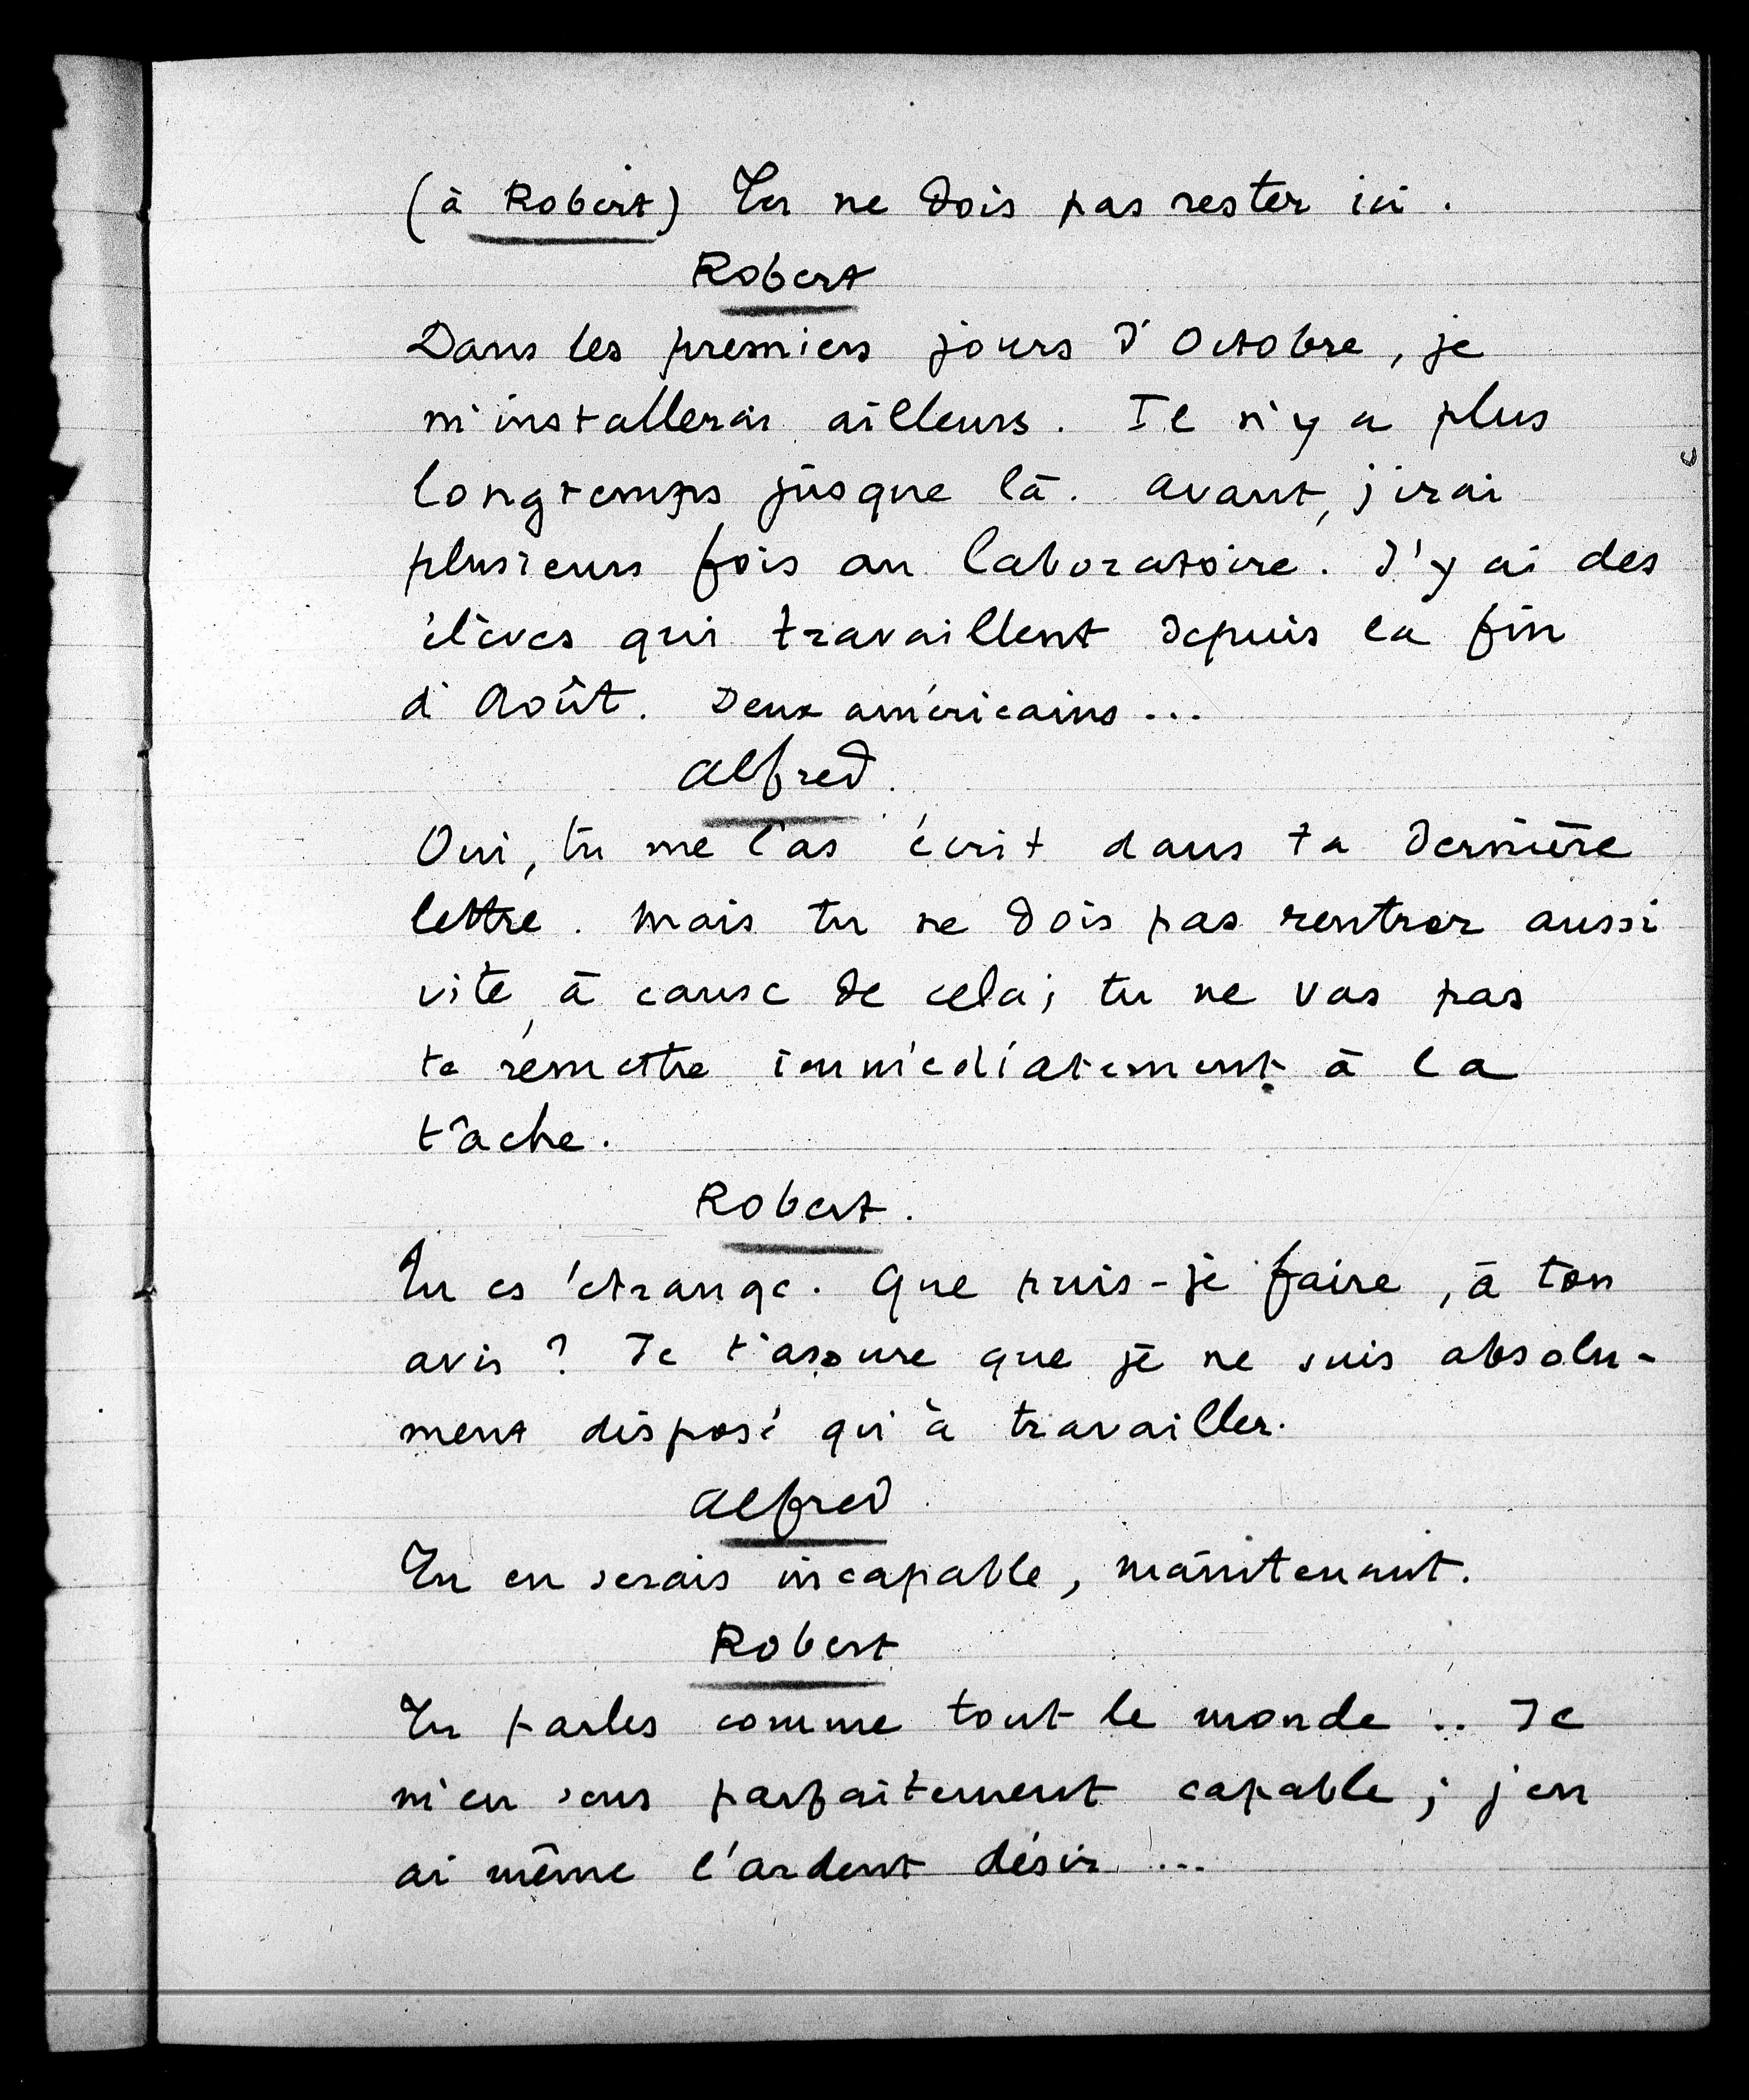 (à Robert) Tu ne dois pas rester ici.
Robert
Dans les premiers jours d'Octobre, je
m'installerai ailleurs. Il n'y a plus
longtemps jusque là. Avant, j'irai
plusieurs fois au laboratoire. J'y ai des
élèves qui travaillent depuis la fin
d'Août. Deux américains...
Alfred.
Oui, tu me l'as écrit dans ta dernière
lettre. Mais tu ne dois pas rentrer aussi
vite, à cause de cela; tu ne vas pas
te remettre immédiatement à la
tâche.
Robert.
Tu es étrange. Que puis-je faire, à ton
avis? Je t'assure que je ne suis absolu-
ment disposé qu'à travailler.
Alfred.
Tu en serais incapable, maintenant.
Robert
Tu parles comme tout le monde.. Je
m'en sens parfaitement capable; j'en
ai même l'ardent désir...